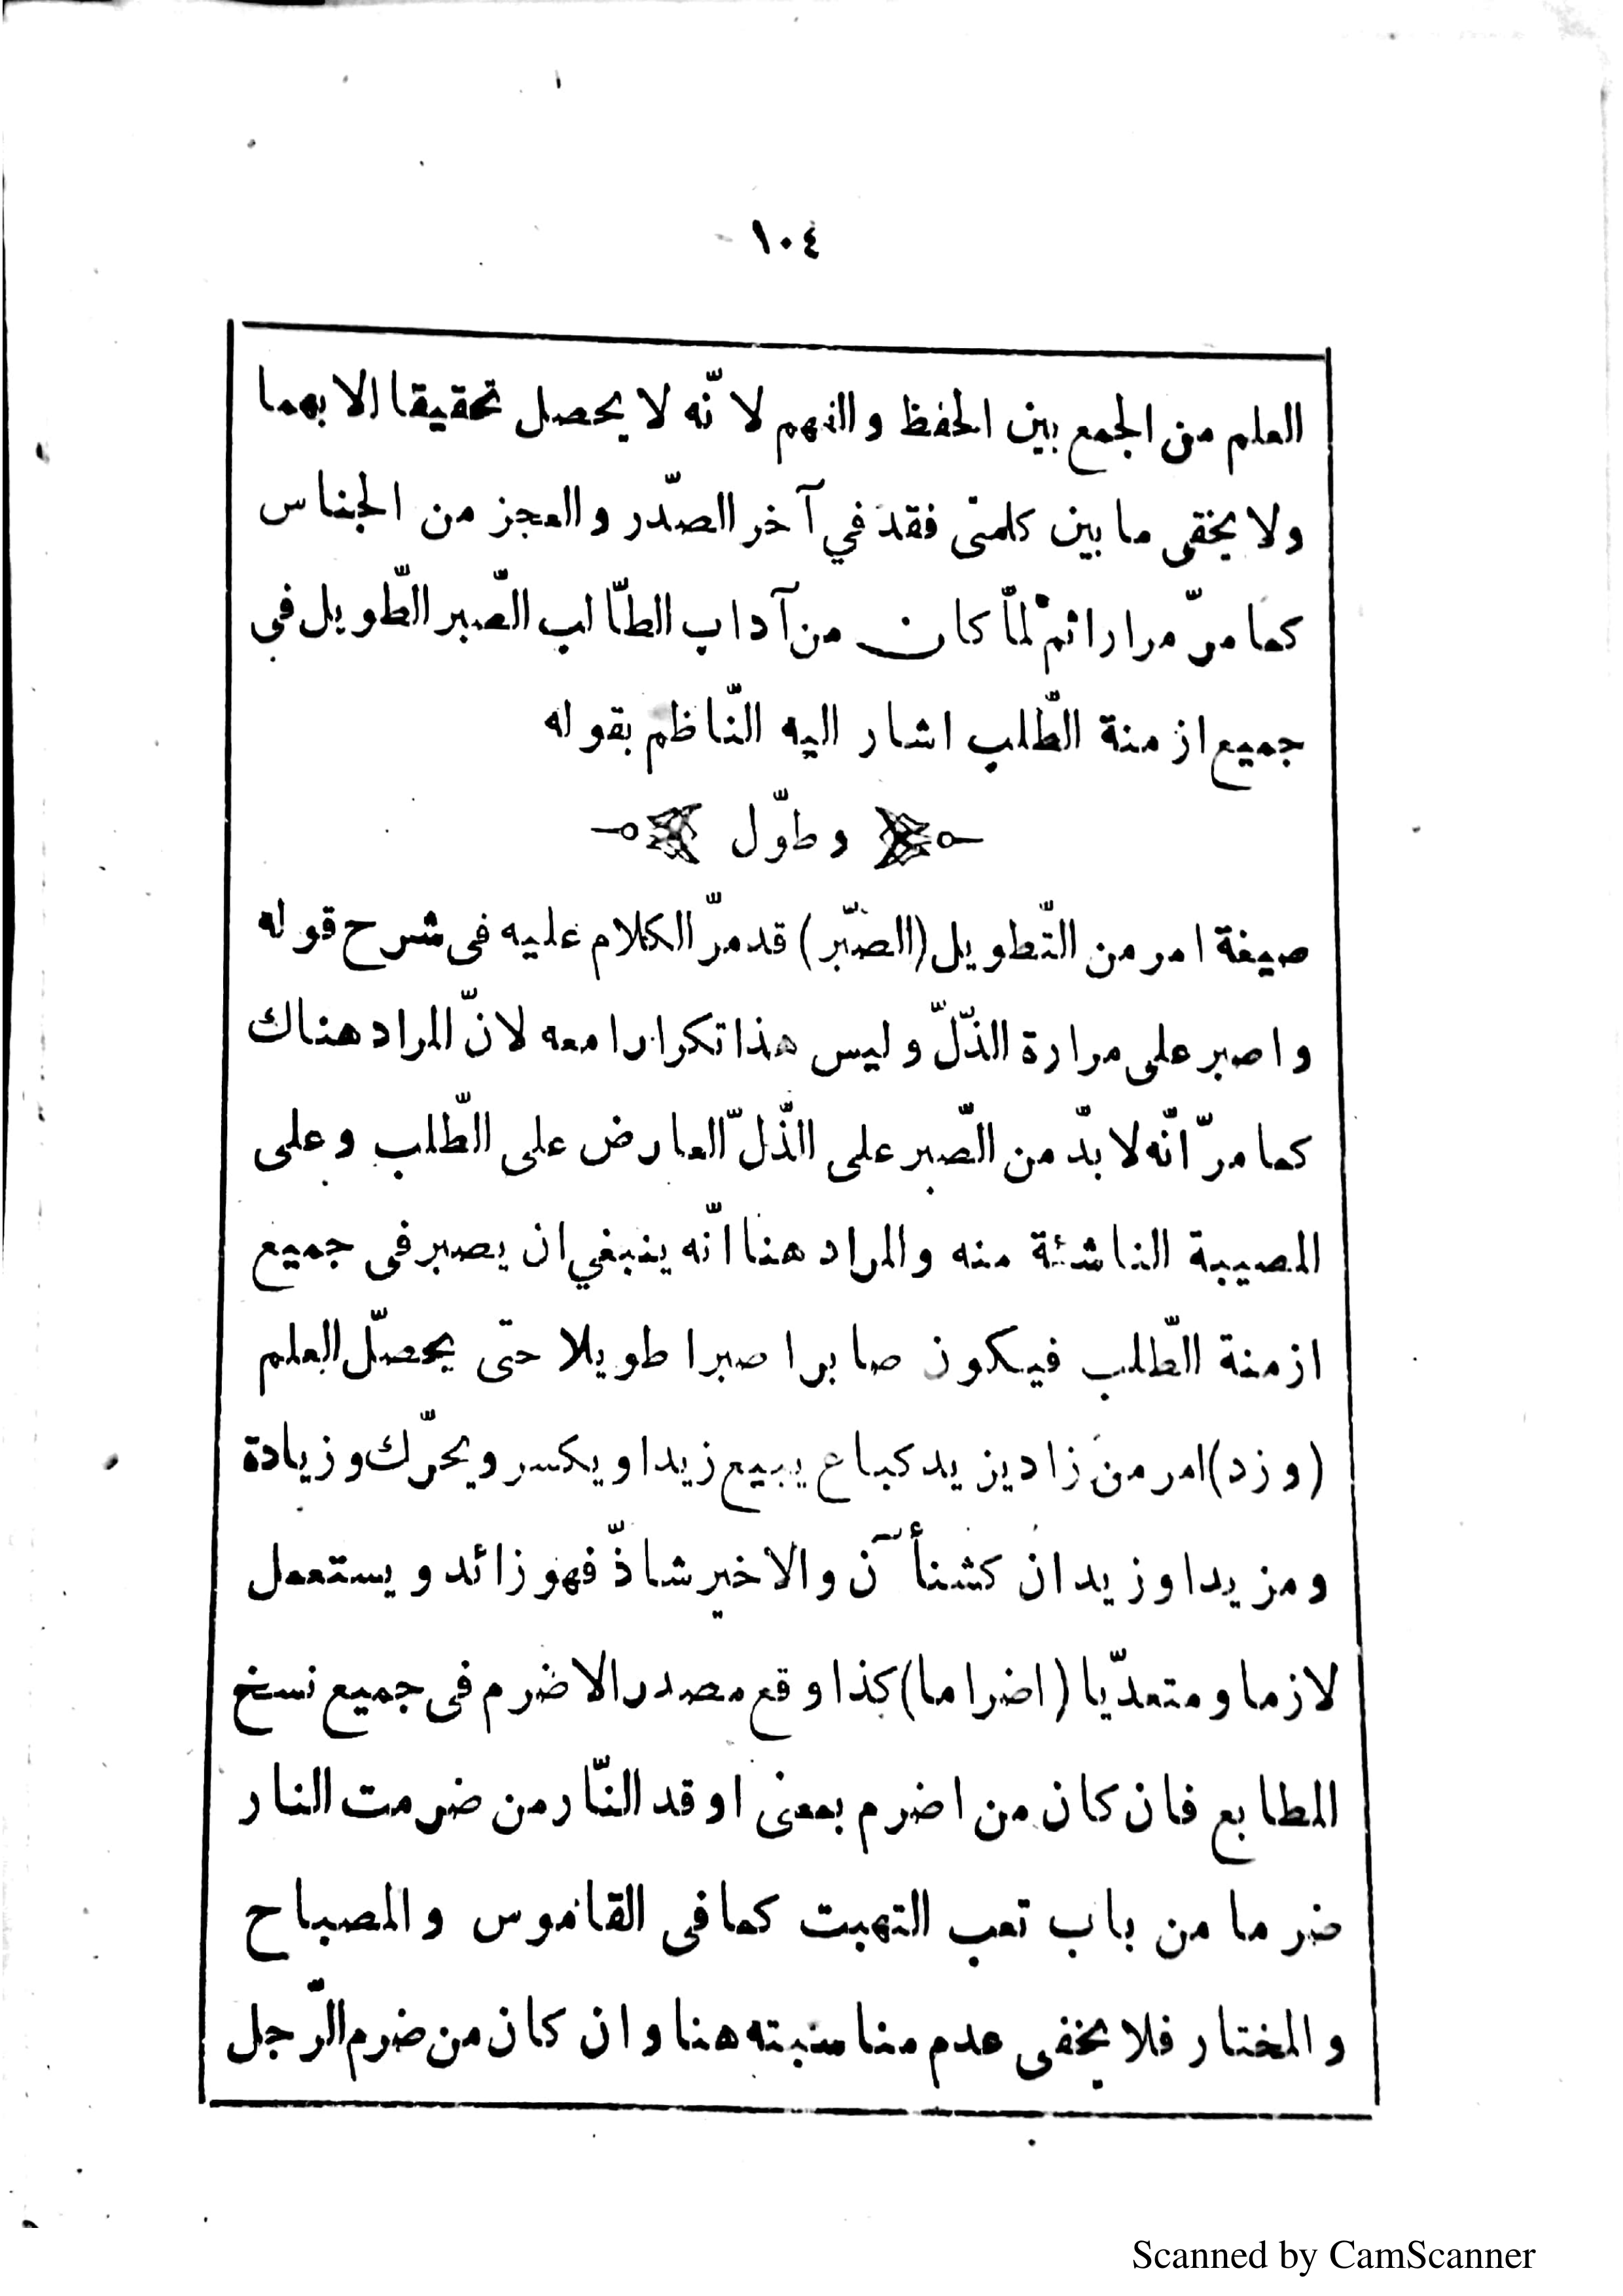 ١٠٤
العلم من الجمع بين الحفظ والفهم لانّه لا يحصل تحقيقا الا بهما
ولا يخفى ما بين كلمتى فقد في آخر الصّدر والعجز من الجناس
كما مرّ مرارا ثم لمّا كان من آداب الطّالب الصّبر الطّويل فى
جميع ازمنة الطّلب اشار اليه النّاظم بقوله
وطوّل
صيغة امر من التّطويل (الصّبر) قد مرّ الكلام عليه فى شرح قوله
واصبر على مرارة الذّلّ وليس هذا تكرارا معه لانّ المراد هناك
كما مرّ انّه لا بدّ من الصّبر على الذّلّ العارض على الطّلب وعلى
المصيبة الناشئة منه والمراد هنا انّه ينبغي ان يصبر فى جميع
ازمنة الطّلب فيكون صابرا صبرا طويلا حتى يحصّل العلم
(وزد) امر من زاد يزيد كباع يبيع زيدا ويكسر ويحرّك وزيادة
ومزيدا وزيدان كشنأٓن والاخير شاذّ فهو زائد ويستعمل
لازما ومتعدّيا (اضراما) كذا وقع مصدر الاضرم فى جميع نسخ
المطابع فان كان من اضرم بمعنى اوقد النّار من ضرمت النار
ضرما من باب تعب التهبت كما فى القاموس والمصباح
والمختار فلا يخفى عدم مناسبته هنا وان كان من ضرم الرّجل
Scanned by CamScanner